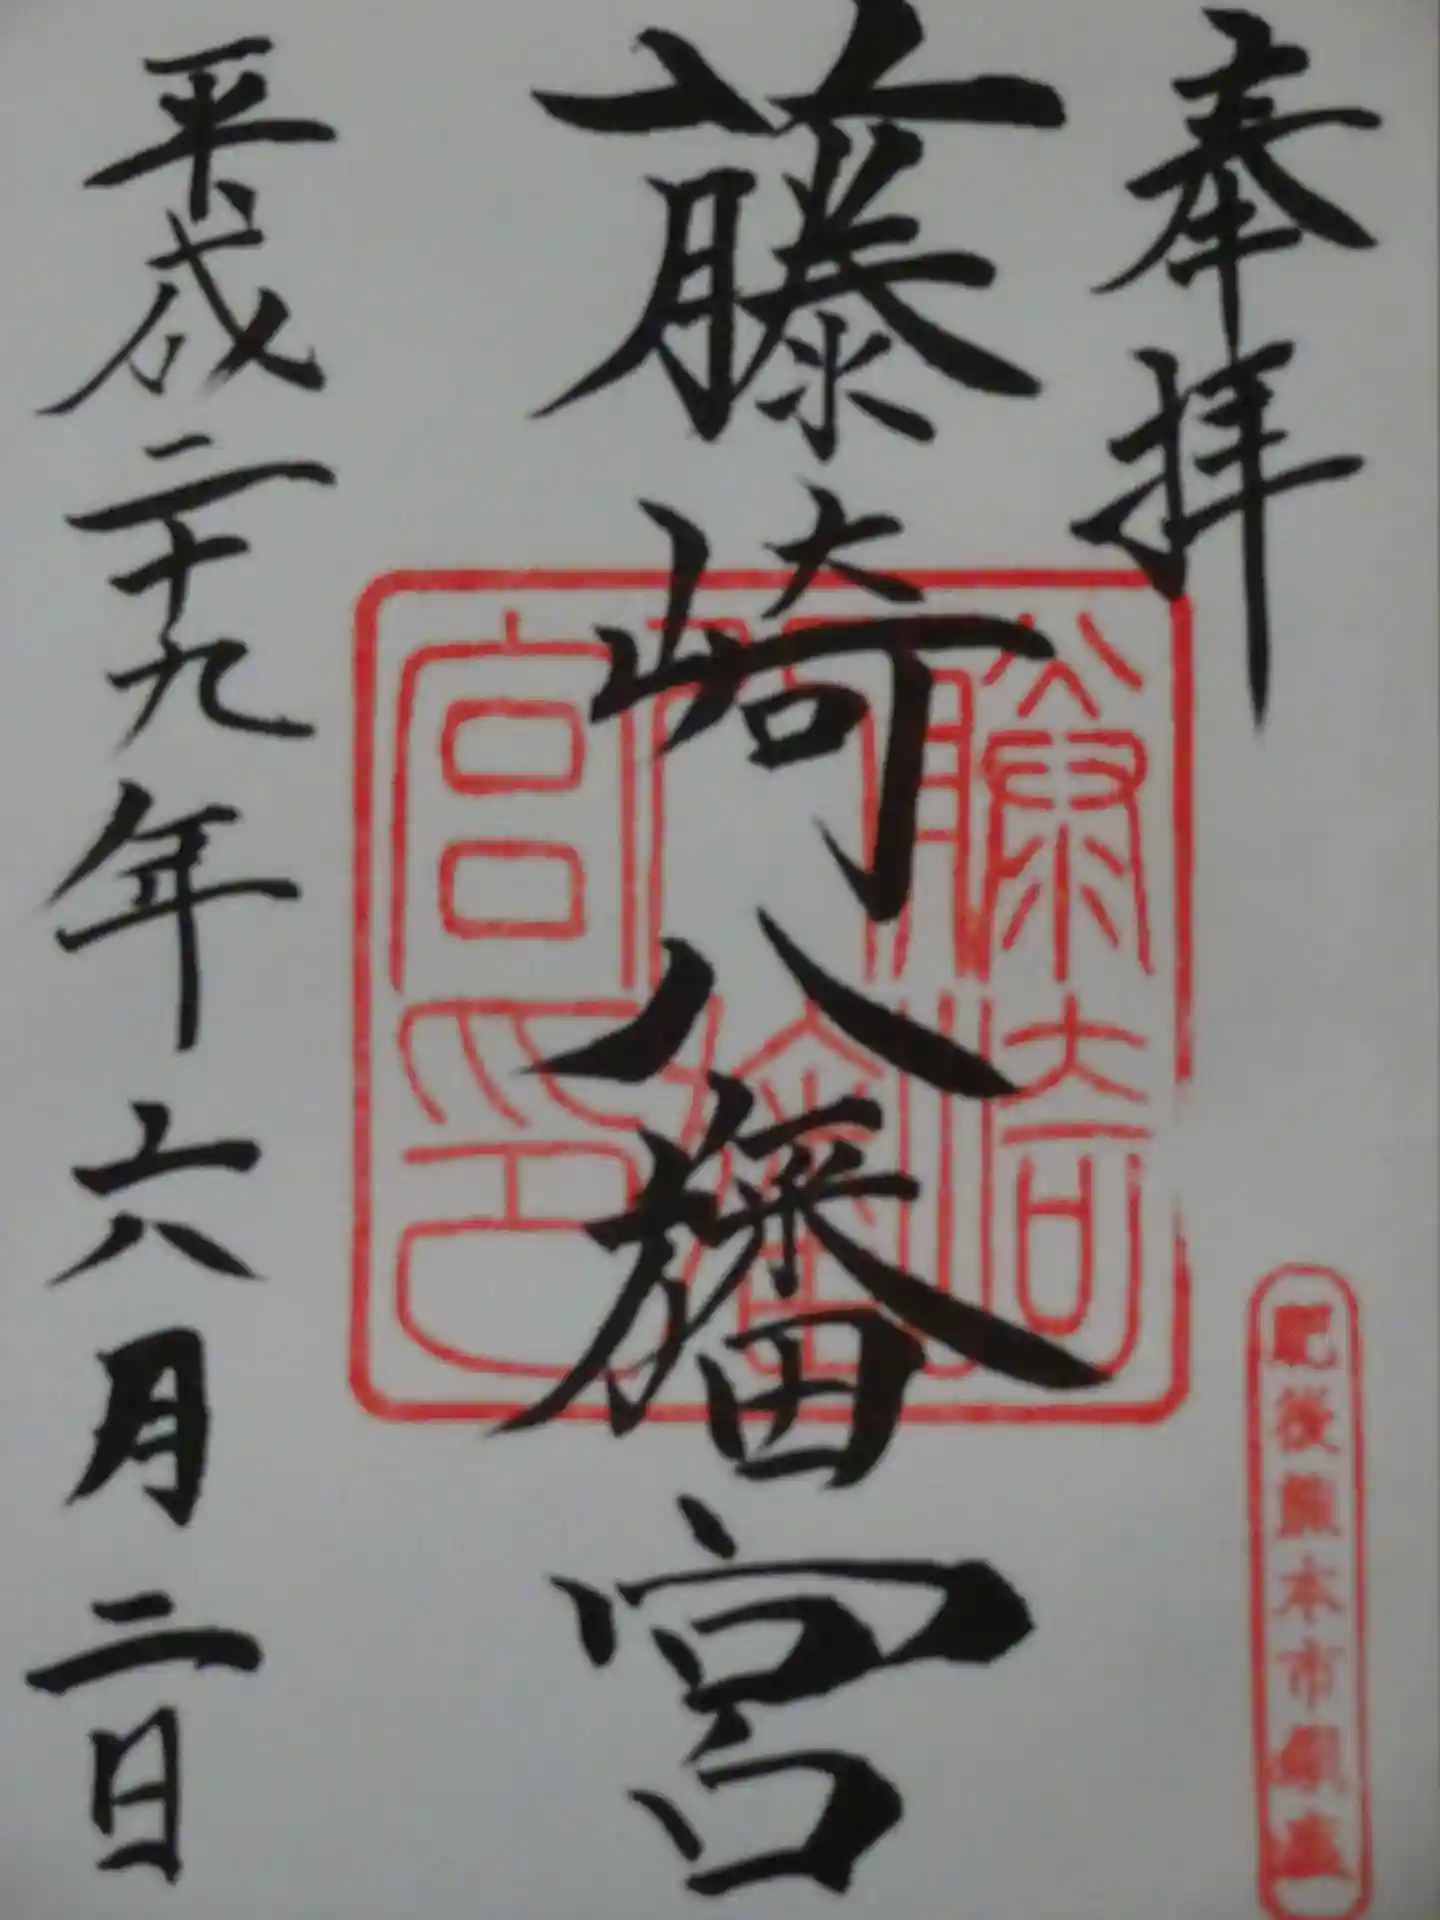 奉拝
肥後熊本市鎮座
藤崎八旛宮
藤崎
八旛
宮印
平成二十九年六月二日